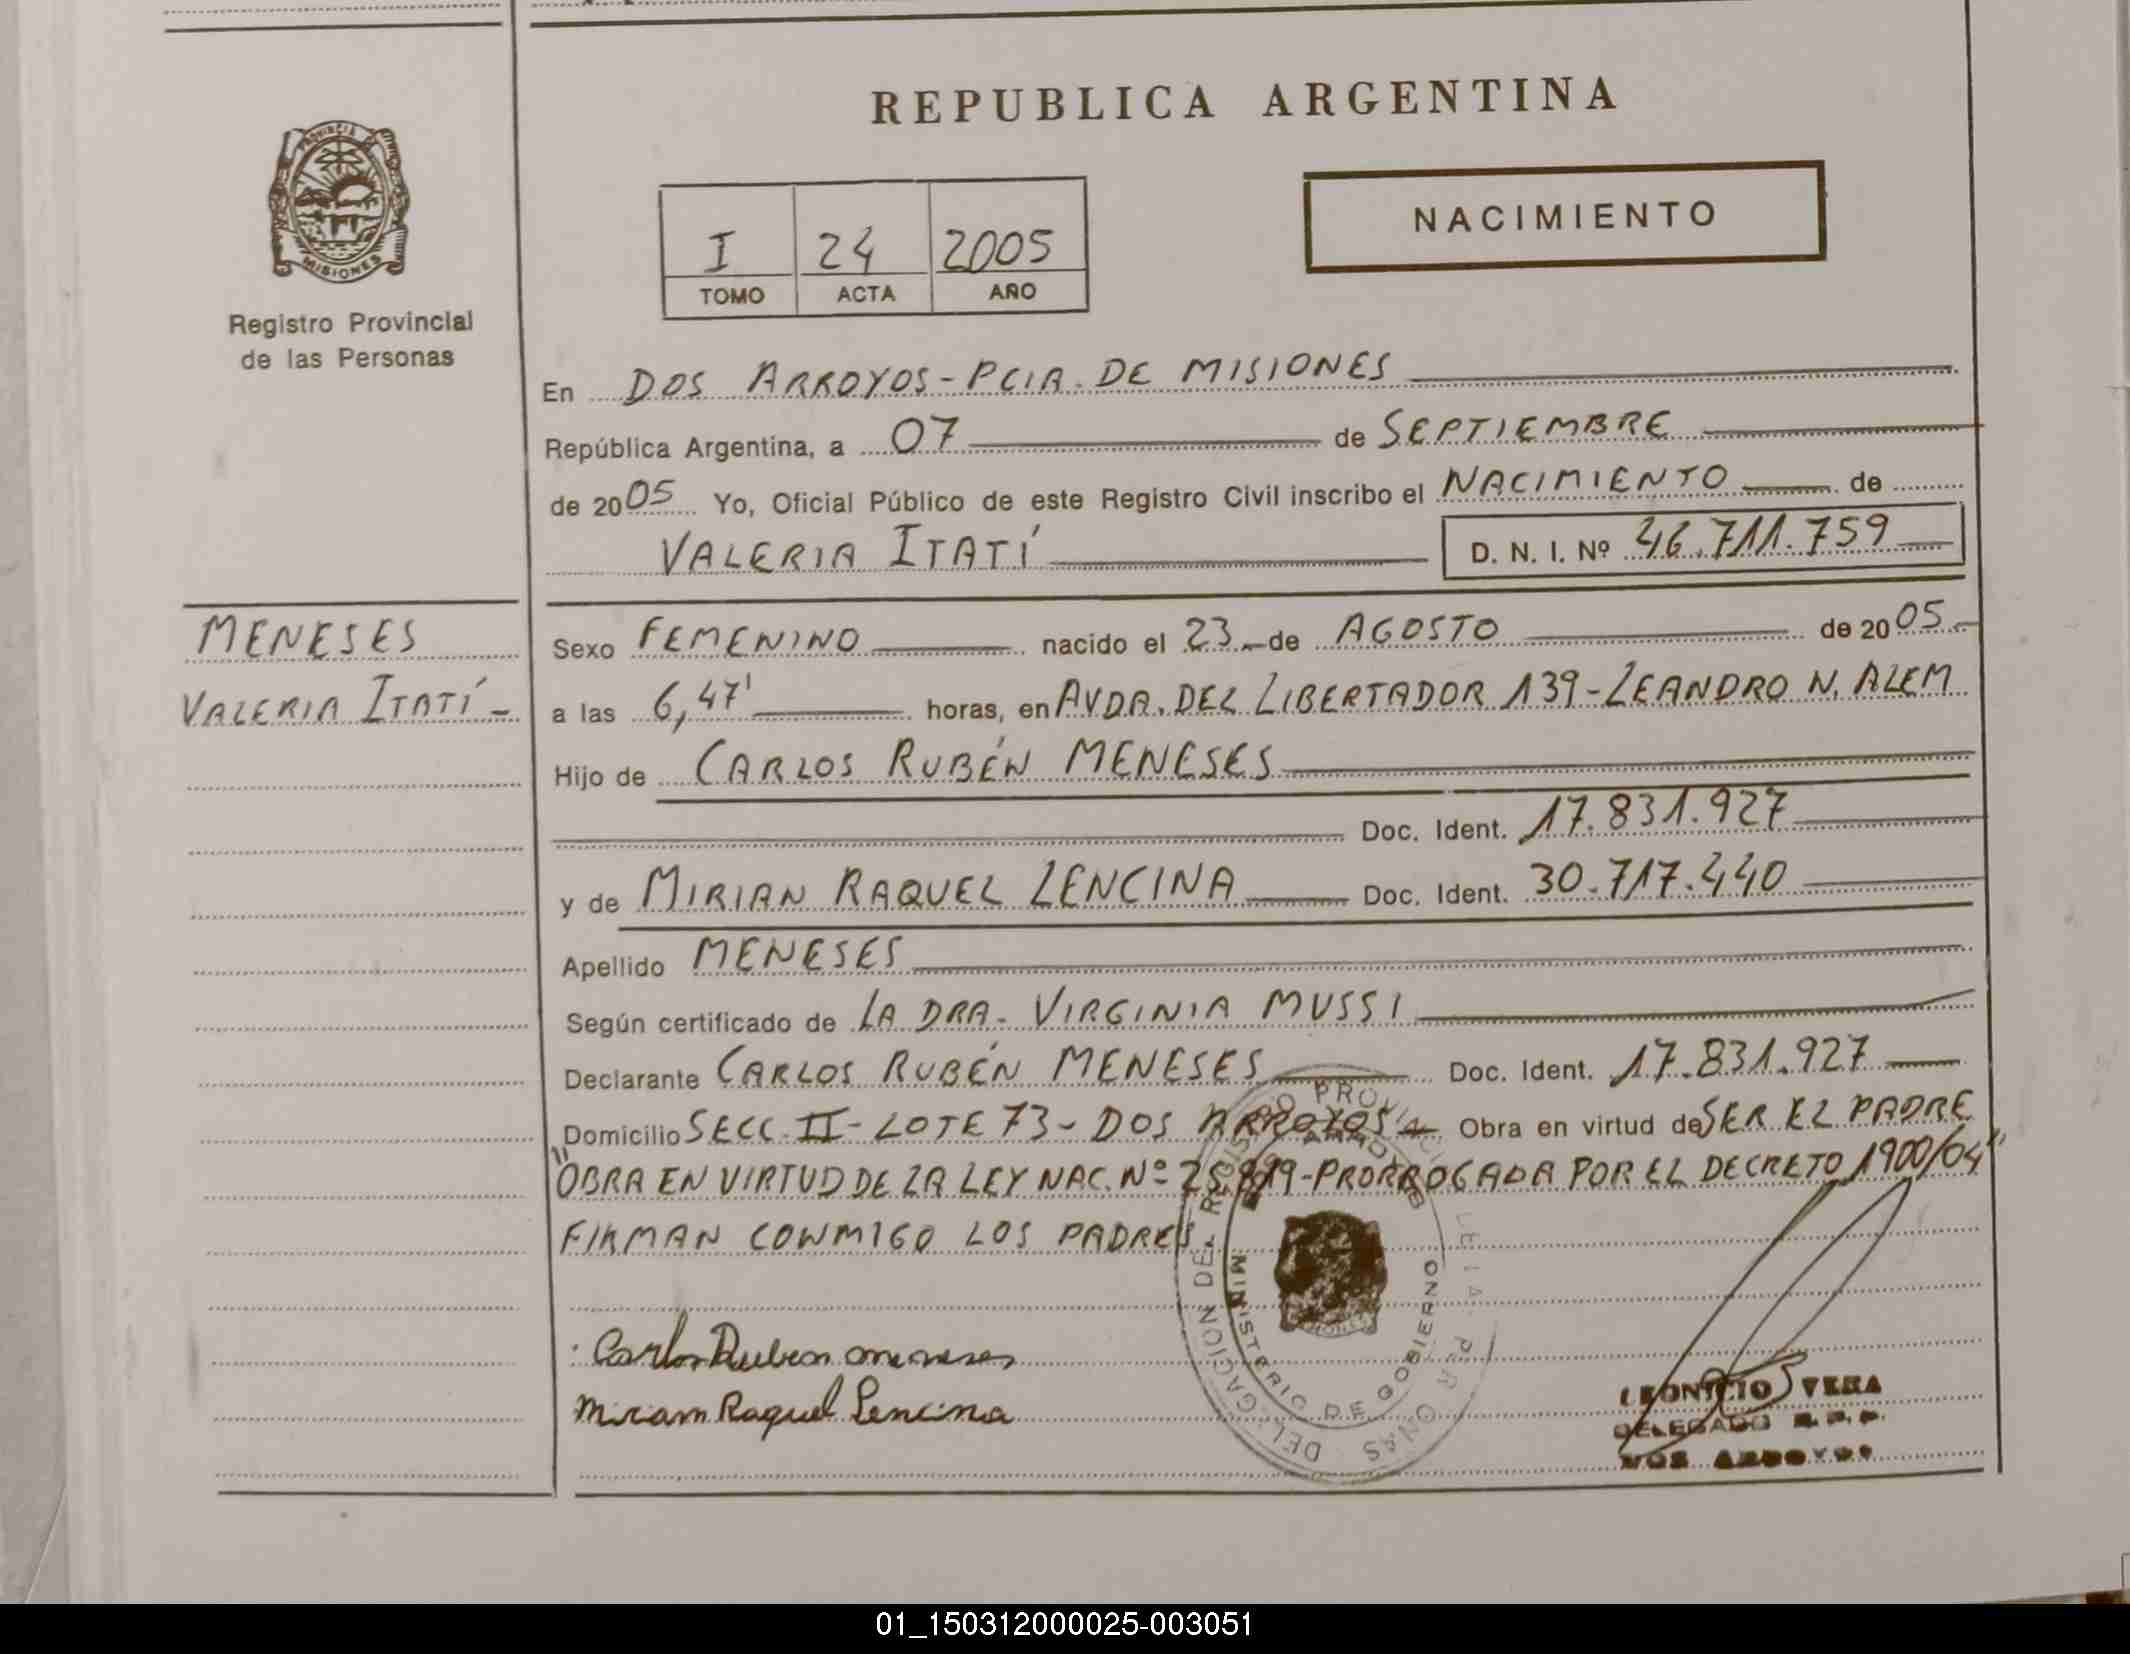 REPUBLICA ARGENTINA
PROVINCIA
MISIONES
Registro Provincial
de las Personas
NACIMIENTO
I 24 2005
TOMO ACTA AÑO
En DOS ARROYOS - PCIA. DE MISIONES
República Argentina, a 07 de SEPTIEMBRE
de 2005 Yo, Oficial Público de este Registro Civil inscribo el NACIMIENTO de
VALERIA ITATÍ D. N. I. Nº 46.711.759
MENESES
VALERIA ITATÍ -
Sexo FEMENINO nacido el 23 de AGOSTO de 2005
a las 6,47' horas, en AVDA. DEL LIBERTADOR 139 - LEANDRO N. ALEM
Hijo de CARLOS RUBÉN MENESES
Doc. Ident. 17.831.927
y de MIRIAN RAQUEL LENCINA Doc. Ident. 30.717.440
Apellido MENESES
Según certificado de LA DRA. VIRGINIA MUSSI
Declarante CARLOS RUBÉN MENESES Doc. Ident. 17.831.927
Domicilio SECC. II - LOTE 73 - DOS ARROYOS Obra en virtud de SER EL PADRE
"OBRA EN VIRTUD DE LA LEY NAC. Nº PRORROGADA POR EL DECRETO 1900/04"
FIRMAN CONMIGO LOS PADRES.
MINISTERIO DE GOBIERNO
Carlos Ruben meneses
Miriam Raquel Lencina
LEONICIO VERA
DELEGADO R. P. P.
DOS ARROYOS
01_150312000025-003051